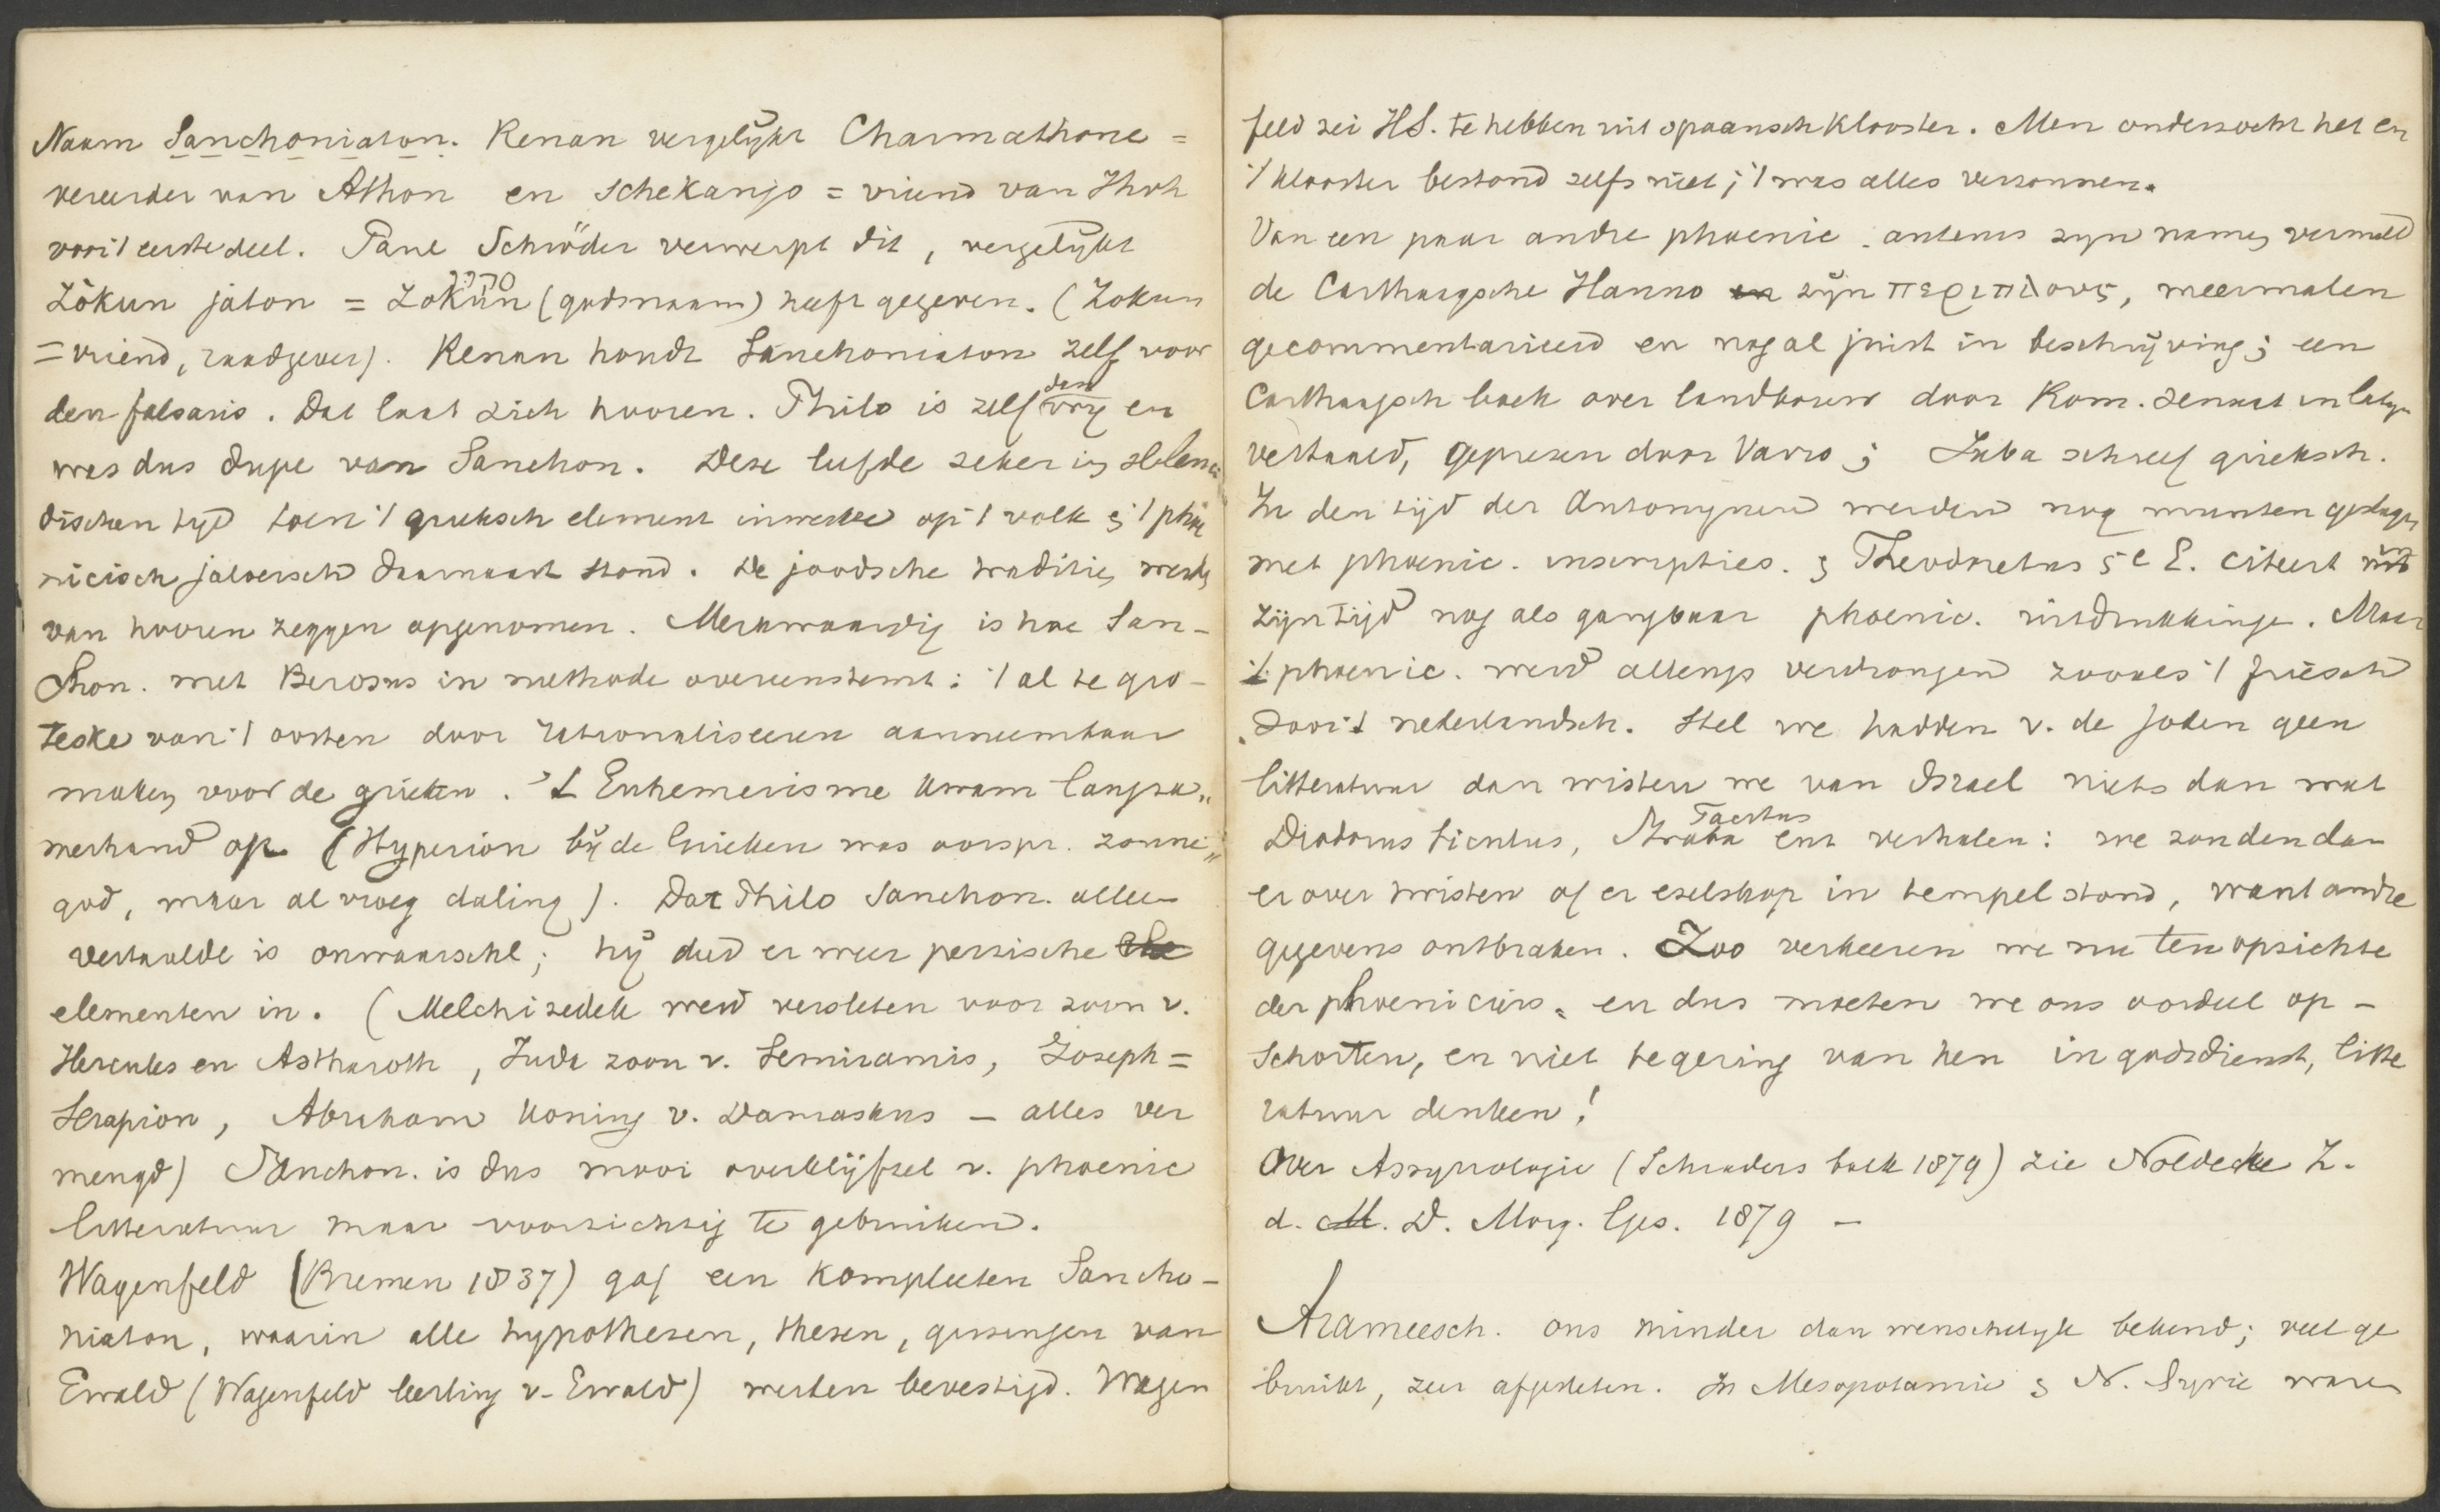 Naam Sanchoniaton. Renan vergelykt Charmathone =
vereerder van Athon en Schekanjo = vriend van Jhvh
voor 't eerste deel. Paul Schröder verwerpt dit, vergelijkt
Zôkun játon = Zokûn סכן (godsnaam) heeft gegeven. (Zokun
= vriend, raadgever). Renan houdt Sanchoniaton zelf voor
den falsaris. Dat laat zich hooren. Philo is zelf dan vry en
was dus dupe van Sanchon. Deze leefde zeker in Helenis
dischen tyd toen 't grieksch element inwerkte op 't volk & 't phoe
nicisch jaloersch daarnaast stond. De joodsche traditien werden
van hooren zeggen opgenomen. Merkwaardig is hoe San-
chon. met Berosus in methode overeenstemt: 't al te gro-
teske van 't oosten door rationaliseeren aanneembaar
maken voor de grieken. 't Euhemerisme kwam langza„
merhand op (Hyperion bij de Grieken was oorspr. zonne„
god, maar al vroeg daling). Dat Philo Sanchon. alleen
vertaalde is onwaarschl; hij deed er weer perzische
elementen in. (Melchizedek werd versleten voor zoon v.
Hercules en Astharoth, Juda zoon v. Semiramis, Joseph =
Serapion, Abraham koning v. Damaskus – alles ver
mengd) Sanchon. is dus mooi overblijfsel v. phoenic
litteratuur maar voorzichtig te gebruiken.
Wagenfeld (Bremen 1837) gaf een kompleeten Sancho-
niaton, waarin alle hypothesen, thesen, gissingen van
Ewald (Wagenfeld leerling v. Ewald) werden bevestigd. Wagen
feld zei HS. te hebben uit spaansch klooster. Men onderzocht het en
't klooster bestond zelfs niet; 't was alles verzonnen.
Van een paar andre phoenic. auteurs zyn namen vermeld
de Carthaagsche Hanno zijn περιπλους, meermalen
gecommentarieerd en nog al juist in beschrijving; een
Carthaagsch boek over landbouw door Rom. senaat in latijn
vertaald, geprezen door Varro; Juba schreef grieksch.
In den tijd der Antonynen werden nog munten geslagen
met phoenic. inscripties. & Theodoretus 5e E. citeert uit
zijn tijd nog als gangbaar phoenic. uitdrukkingen. Maar
't phoenic. werd allengs verdrongen zooals 't friesch
door 't nederlandsch. Stel we hadden v. de joden geen
litteratuur dan wisten we van Israel niets dan wat
Diodorus Siculus, Strabo Tacitus enz verhalen: we zouden dan
er over twisten of er ezelskop in tempel stond, want andre
gegevens ontbraken. Zoo verkeeren we nu ten opzichte
der phoeniciers. en dus moeten we ons oordeel op-
schorten, en niet te gering van hen in godsdienst, litte
ratuur denken!
Over Assyriologie (Schraders boek 1879) zie Noldecke Z.
d. M. D. Morg. Ges. 1879 –
Arameesch. ons minder dan wenschelyk bekend; veel ge
bruikt, zeer afgesleten. In Mesopotamie & N. Syrie waren